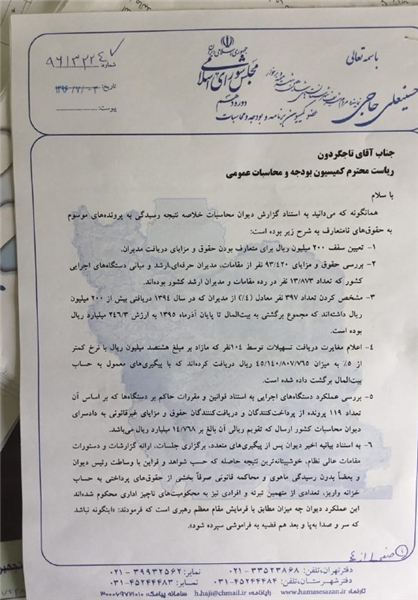 باسمه تعالی
جمهوری اسلامی ایران
مجلس شورای اسلامی
دوره دهم
حسینعلی حاجی
عضو کمیسیون برنامه و بودجه و محاسبات
شماره: ۹۶/۳۲۲۴
تاریخ: ۱۳۹۶/۷/۰۳
پیوست:
جناب آقای تاجگردون
ریاست محترم کمیسیون بودجه و محاسبات عمومی
با سلام
همانگونه که می‌دانید به استناد گزارش دیوان محاسبات خلاصه نتیجه رسیدگی به پرونده‌های موسوم
به حقوق‌های نامتعارف به شرح زیر بوده است:
۱- تعیین سقف ۲۰۰ میلیون ریال برای متعارف بودن حقوق و مزایای دریافت مدیران.
۲- بررسی حقوق و مزایای ۹۳/۴۲۰ نفر از مقامات، مدیران حرفه‌ای، ارشد و میانی دستگاه‌های اجرایی
کشور که تعداد ۱۳/۸۷۳ نفر در رده مقامات و مدیران ارشد کشور بوده‌اند.
۳- مشخص کردن تعداد ۳۹۷ نفر معادل از مدیران که در سال ۱۳۹۴ دریافتی بیش از ۲۰۰ میلیون
ریال داشته‌اند که مجموع برگشتی به بیت‌المال تا پایان آذرماه ۱۳۹۵ به ارزش ۲۴۶/۳ میلیارد ریال
بوده است.
۴- اعلام مغایرت دریافت تسهیلات توسط ۱۰۴نفر که مازاد بر مبلغ هشتصد میلیون ریال با نرخ کمتر
از ۵٪ به میزان ۴۵/۱۴۰/۸۰۷/۷۶۵ ریال دریافت کرده‌اند که با پیگیری‌های معمول به حساب
بیت‌المال برگشت داده شده است.
۵- بررسی عملکرد دستگاه‌های اجرایی به استناد قوانین و مقررات حاکم بر دستگاه‌ها که بر اساس آن
تعداد ۱۱۹ پرونده از پرداخت‌کنندگان و دریافت‌کنندگان حقوق و مزایای غیرقانونی به دادسرای
دیوان محاسبات کشور ارسال که تقویم ریالی آن بالغ بر ۱۴/۷۶۸ میلیارد ریال می‌باشد.
۶- به استناد بیانیه اخیر دیوان پس از پیگیری‌های متعدد، برگزاری جلسات، ارائه گزارشات و دستورات
مقامات عالی نظام، خوشبینانه‌ترین نتیجه حاصله که حسب شواهد و قراین با وساطت رئیس دیوان
و بعضاً بدون رسیدگی ماهوی و محاکمه قانونی صرفاً بخشی از حقوق‌های پرداختی به حساب
خزانه واریز، تعدادی از متهمین تبرئه و افرادی نیز به محکومیت‌های ناچیز اداری محکوم شده‌اند
این عملکرد دیوان چه میزان مطابق با فرمایش مقام معظم رهبری است که فرمودند: «اینگونه نباشد
که سر و صدا به‌پا و بعد هم قضیه به فراموشی سپرده شود».
صفحه ۱ از ۴
دفتر تهران، تلفن: ۳۳۵۲۳۸۶۸-۰۲۱ نمابر: ۳۹۹۳۲۵۶۲-۰۲۱
دفتر شهرستان، تلفن: ۴۵۲۴۴۴۸۴-۰۳۱ نمابر: ۴۵۲۴۴۴۸۳-۰۳۱
تارنما: www.hamasesazan.ir رایانامه: h.haji@chmail.ir سامانه پیامک: ۳۰۰۰۶۹۷۶۱۰۱۰